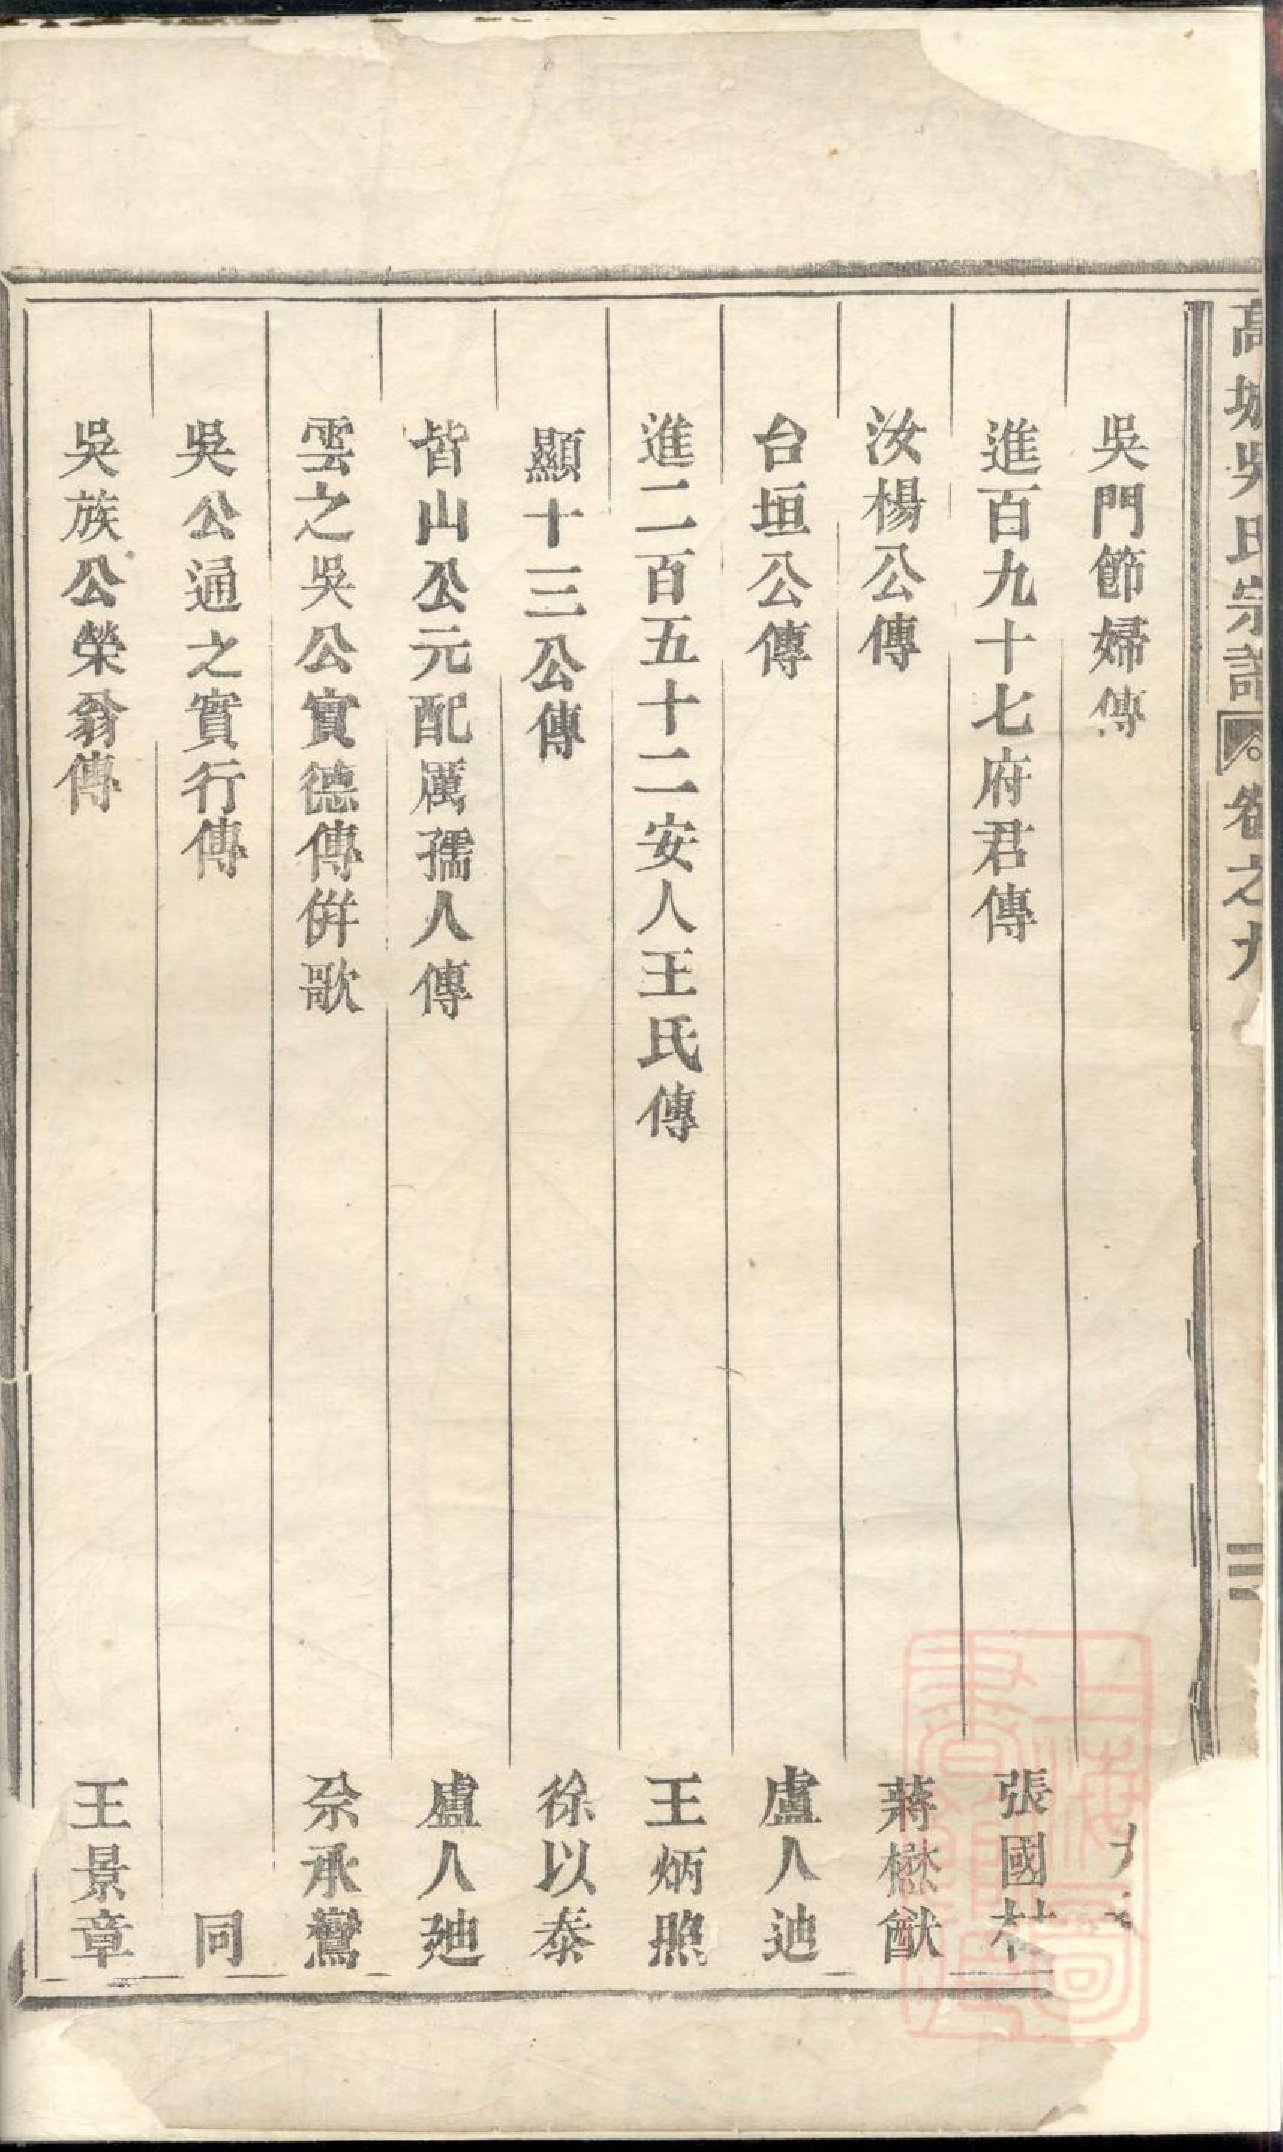 高城吳氏宗譜 卷之九
吳門節婦傳
進百九十七府君傳 張國
汝楊公傳 蔣懋猷
台垣公傳 盧人迪
進二百五十二安人王氏傳 王炳照
顯十三公傳 徐以泰
皆山公元配厲孺人傳 盧人𢌞
雲之吳公實德傳併歌 余承鸞
吳公通之實行傳 同
吳族公榮翁傳 王景章
上海圖書館藏